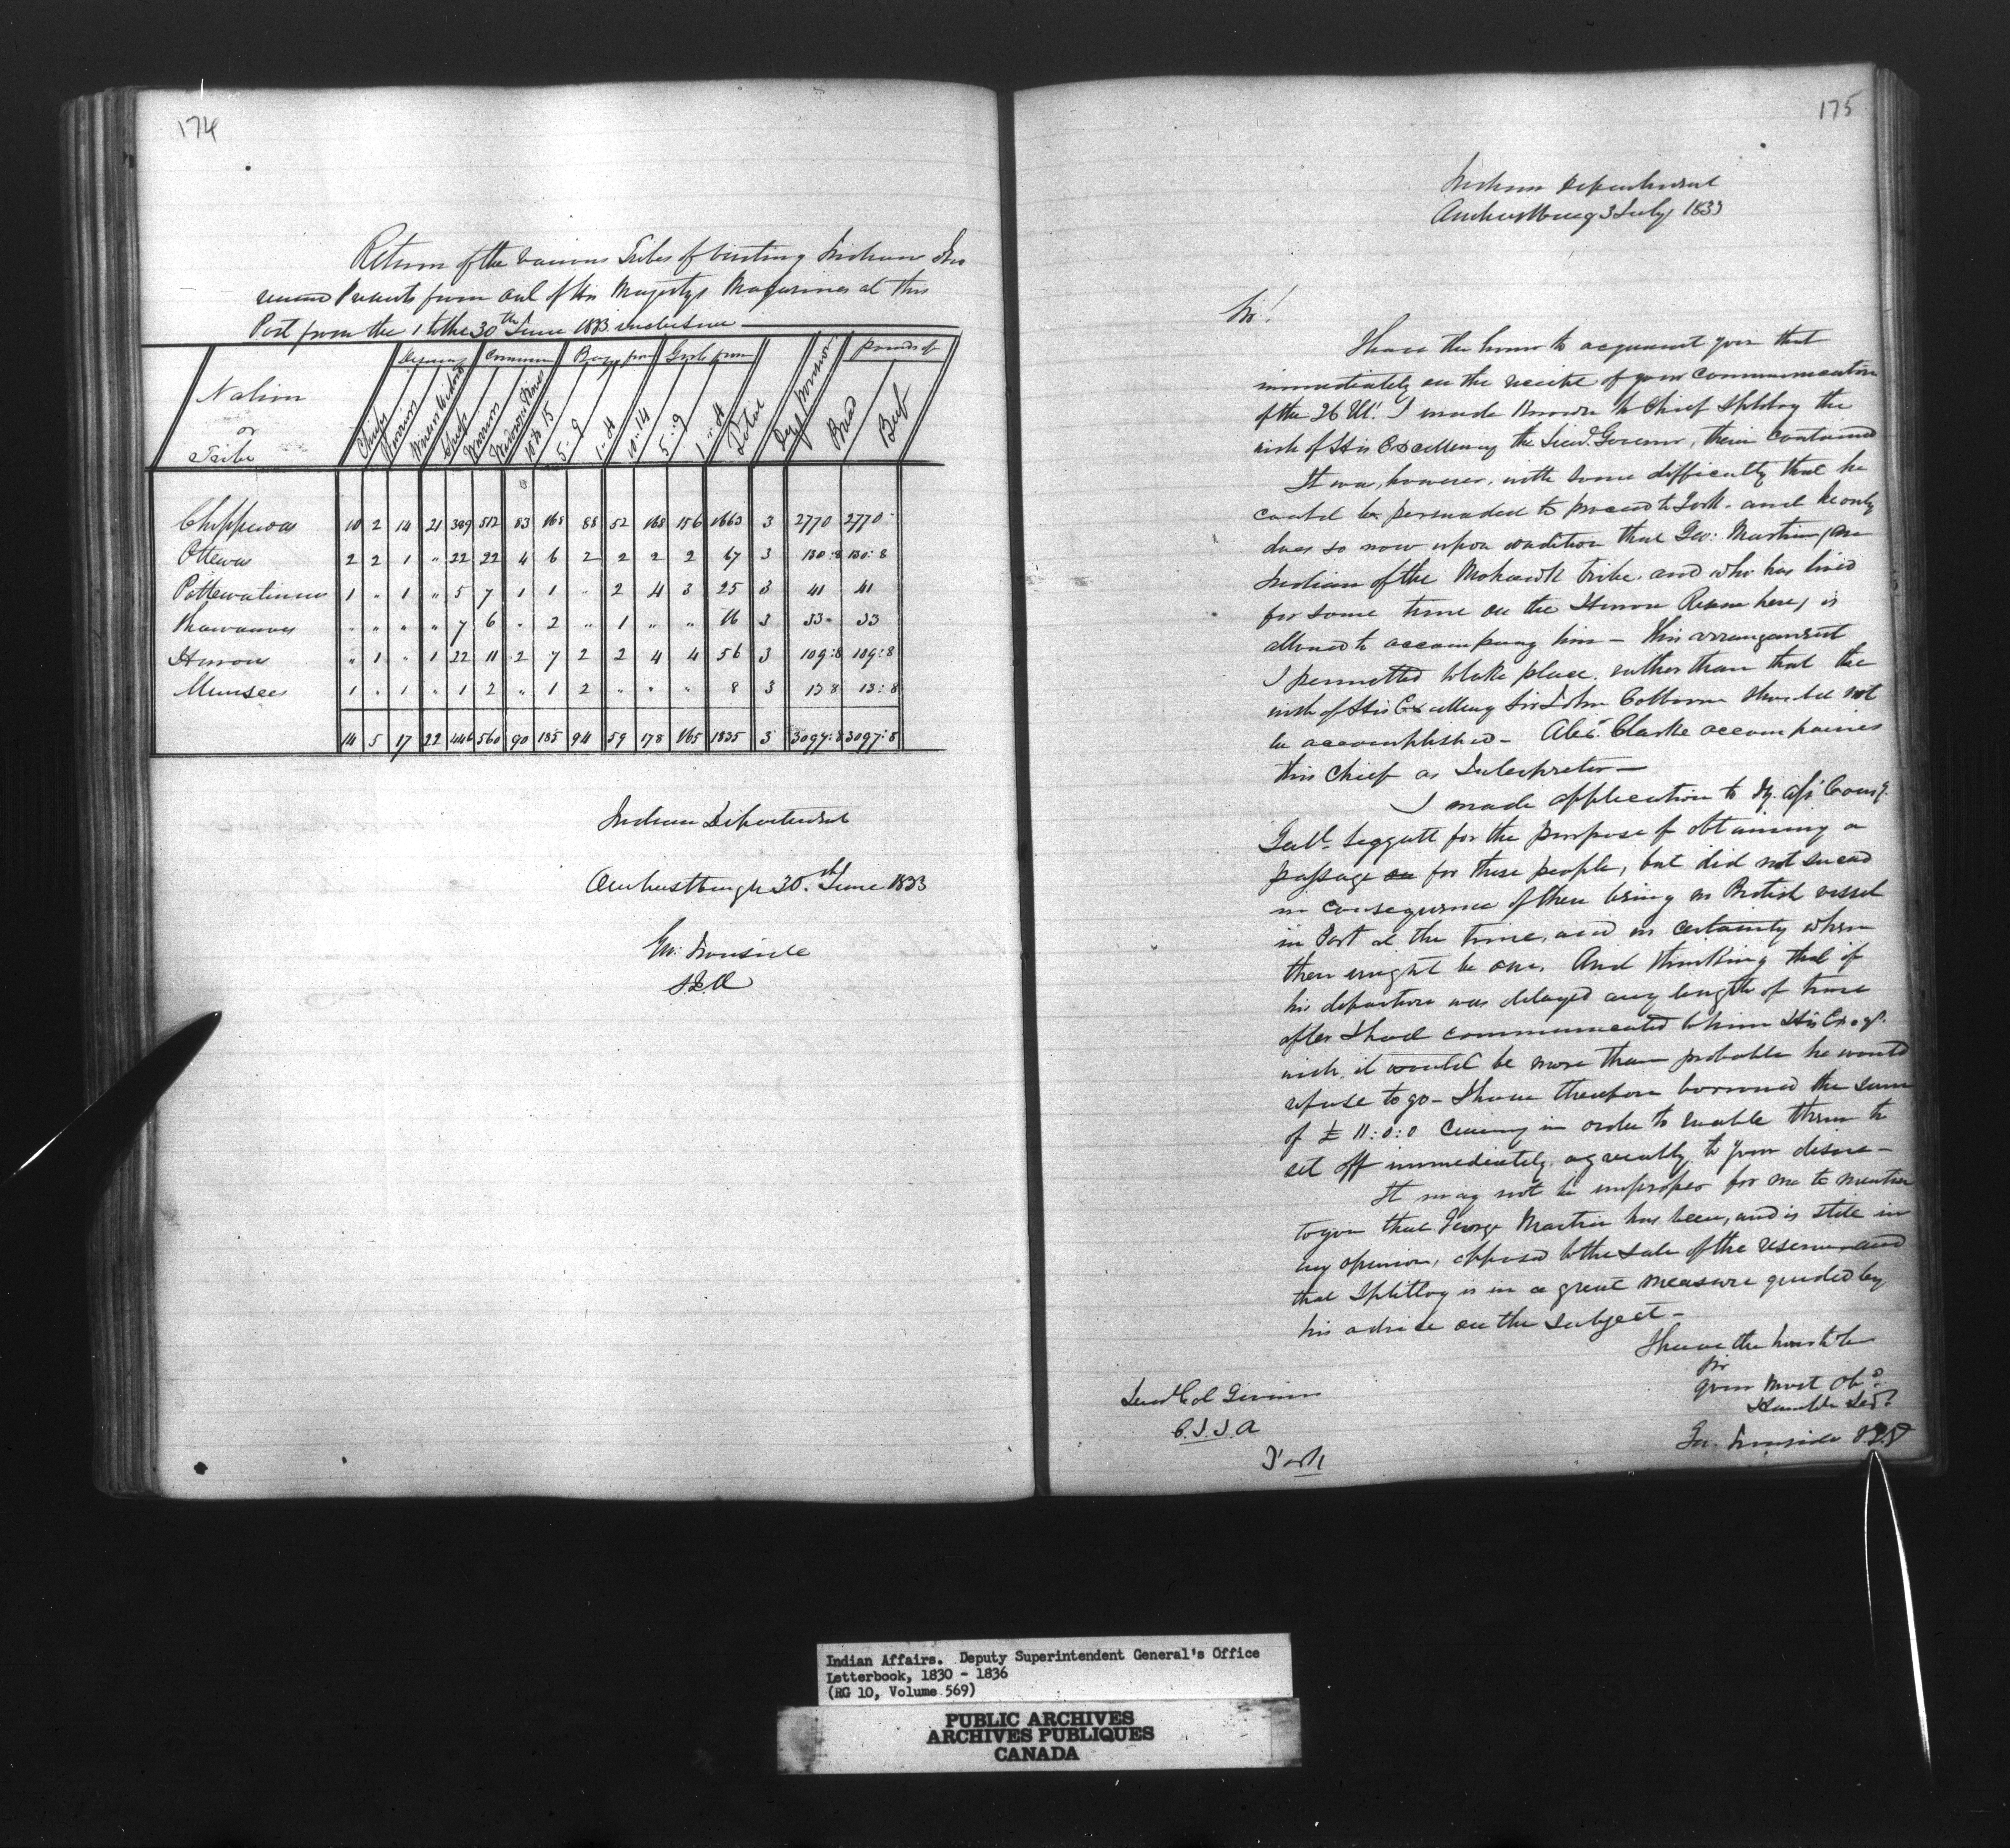 174
Return of the various Tribes of visiting Indians who
received Presents from out of His Majestys Magazines at this
Post from the 1 to the 30th June 1833 inclusive
Nation or Tribe | Chiefs | Warriors | | Chiefs | Warriors | | 10 to 15 | 5 .. 9 | 1 .. 4 | 10 .. 14 | 5 .. 9 | 1 .. 4 | Total | | Bread | Beef
Common Boys from Girls from Pounds of
Chippewas 10 2 14 21 389 512 83 168 88 52 168 156 1663 3 2770 2770
Ottewas 2 2 1 " 22 22 4 6 2 2 2 2 67 3 130:8 130:8
Pottewatimies 1 " 1 " 5 7 1 1 " 2 4 3 25 3 41 41
Shawanoes " " " " 7 6 " 2 " 1 " " 16 3 33 33
Hurons " 1 " 1 22 11 2 7 2 2 4 4 56 3 109:8 109:8
Munsees 1 " 1 " 1 2 " 1 2 " " " 8 3 13 8 13:8
14 5 17 22 446 560 90 185 94 59 178 165 1835 3 3097:8 3097:8
Indian Department
Amherstburgh 30th June 1833
Geo: Ironside
S.I.A
175
Indian Department
Amherstburg 3 July 1833
Sir!
I have the honor to acquaint you that
immediately on the receipt of your communication
of the 26 Ult. I made known to Chief Splitlog the
wish of His Excellency the Lieut. Governor, therein contained
It was, however, with some difficulty that he
could be persuaded to proceed to York. and he only
does so now upon condition that Geo: Martin (an
Indian of the Mohawk tribe. and who has lived
for some time on the Huron Reserve here) is
allowed to accompany him – this arrangement
I permitted to take place. rather than that the
wish of His Excellency Sir John Colborne should not
be accomplished – Alexr. Clarke accompanies
this Chief as Interpreter –
I made application to Dy. Asst. Comy.
Genl. Leggatt for the purpose of obtaining a
passage for these people, but did not succeed
in consequence of there being no British vessel
in Port at the time, and no certainty when
there might be one. And thinking that if
his departure was delayed any length of time
after I had communicated to him His Excys.
wish. it would be more than probable he would
refuse to go – I have therefore borrowed the sum
of £ 11:0:0 Curcny in order to enable them to
set off immediately. agreeably to your desire –
It may not be improper for me to mention
to you that George Martin has been, and is still in
my opinion, opposed to the sale of the reserve and
that Splitlog is in a great measure guided by
his advice on the subject –
I have the honor to be
Sir
your most obt.
Humble Sert.
Geo. Ironside S.I.A
Lieut Col Givins
C.S.I.A
York
Indian Affairs. Deputy Superintendent General's Office
Letterbook, 1830 - 1836
(RG 10, Volume 569)
PUBLIC ARCHIVES
ARCHIVES PUBLIQUES
CANADA